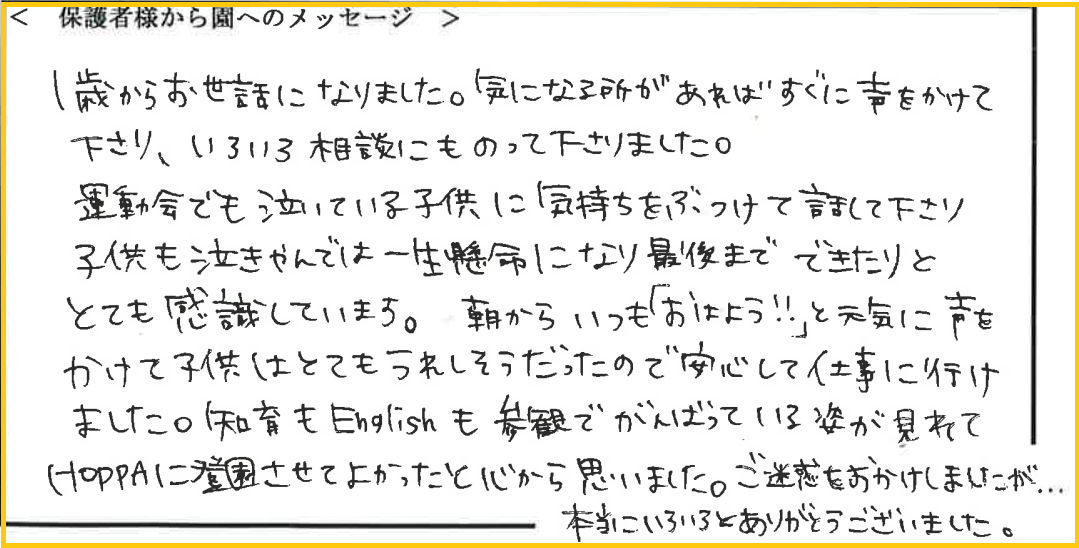 < 保護者様から園へのメッセージ >
1歳からお世話になりました。気になる所があればすぐに声をかけて
下さり、いろいろ相談にものって下さりました。
運動会でも泣いている子供に気持ちをぶつけて話して下さり
子供も泣きやんでは一生懸命になり最後までできたりと
とても感識しています。朝からいつも「おはよう!!」と元気に声を
かけて子供はとてもうれしそうだったので安心して仕事に行け
ました。知育もEnglishも参観でがんばっている姿が見れて
HOPPAに登園させてよかったと心から思いました。ご迷惑をおかけしましたが…
本当にいろいろとありがとうございました。